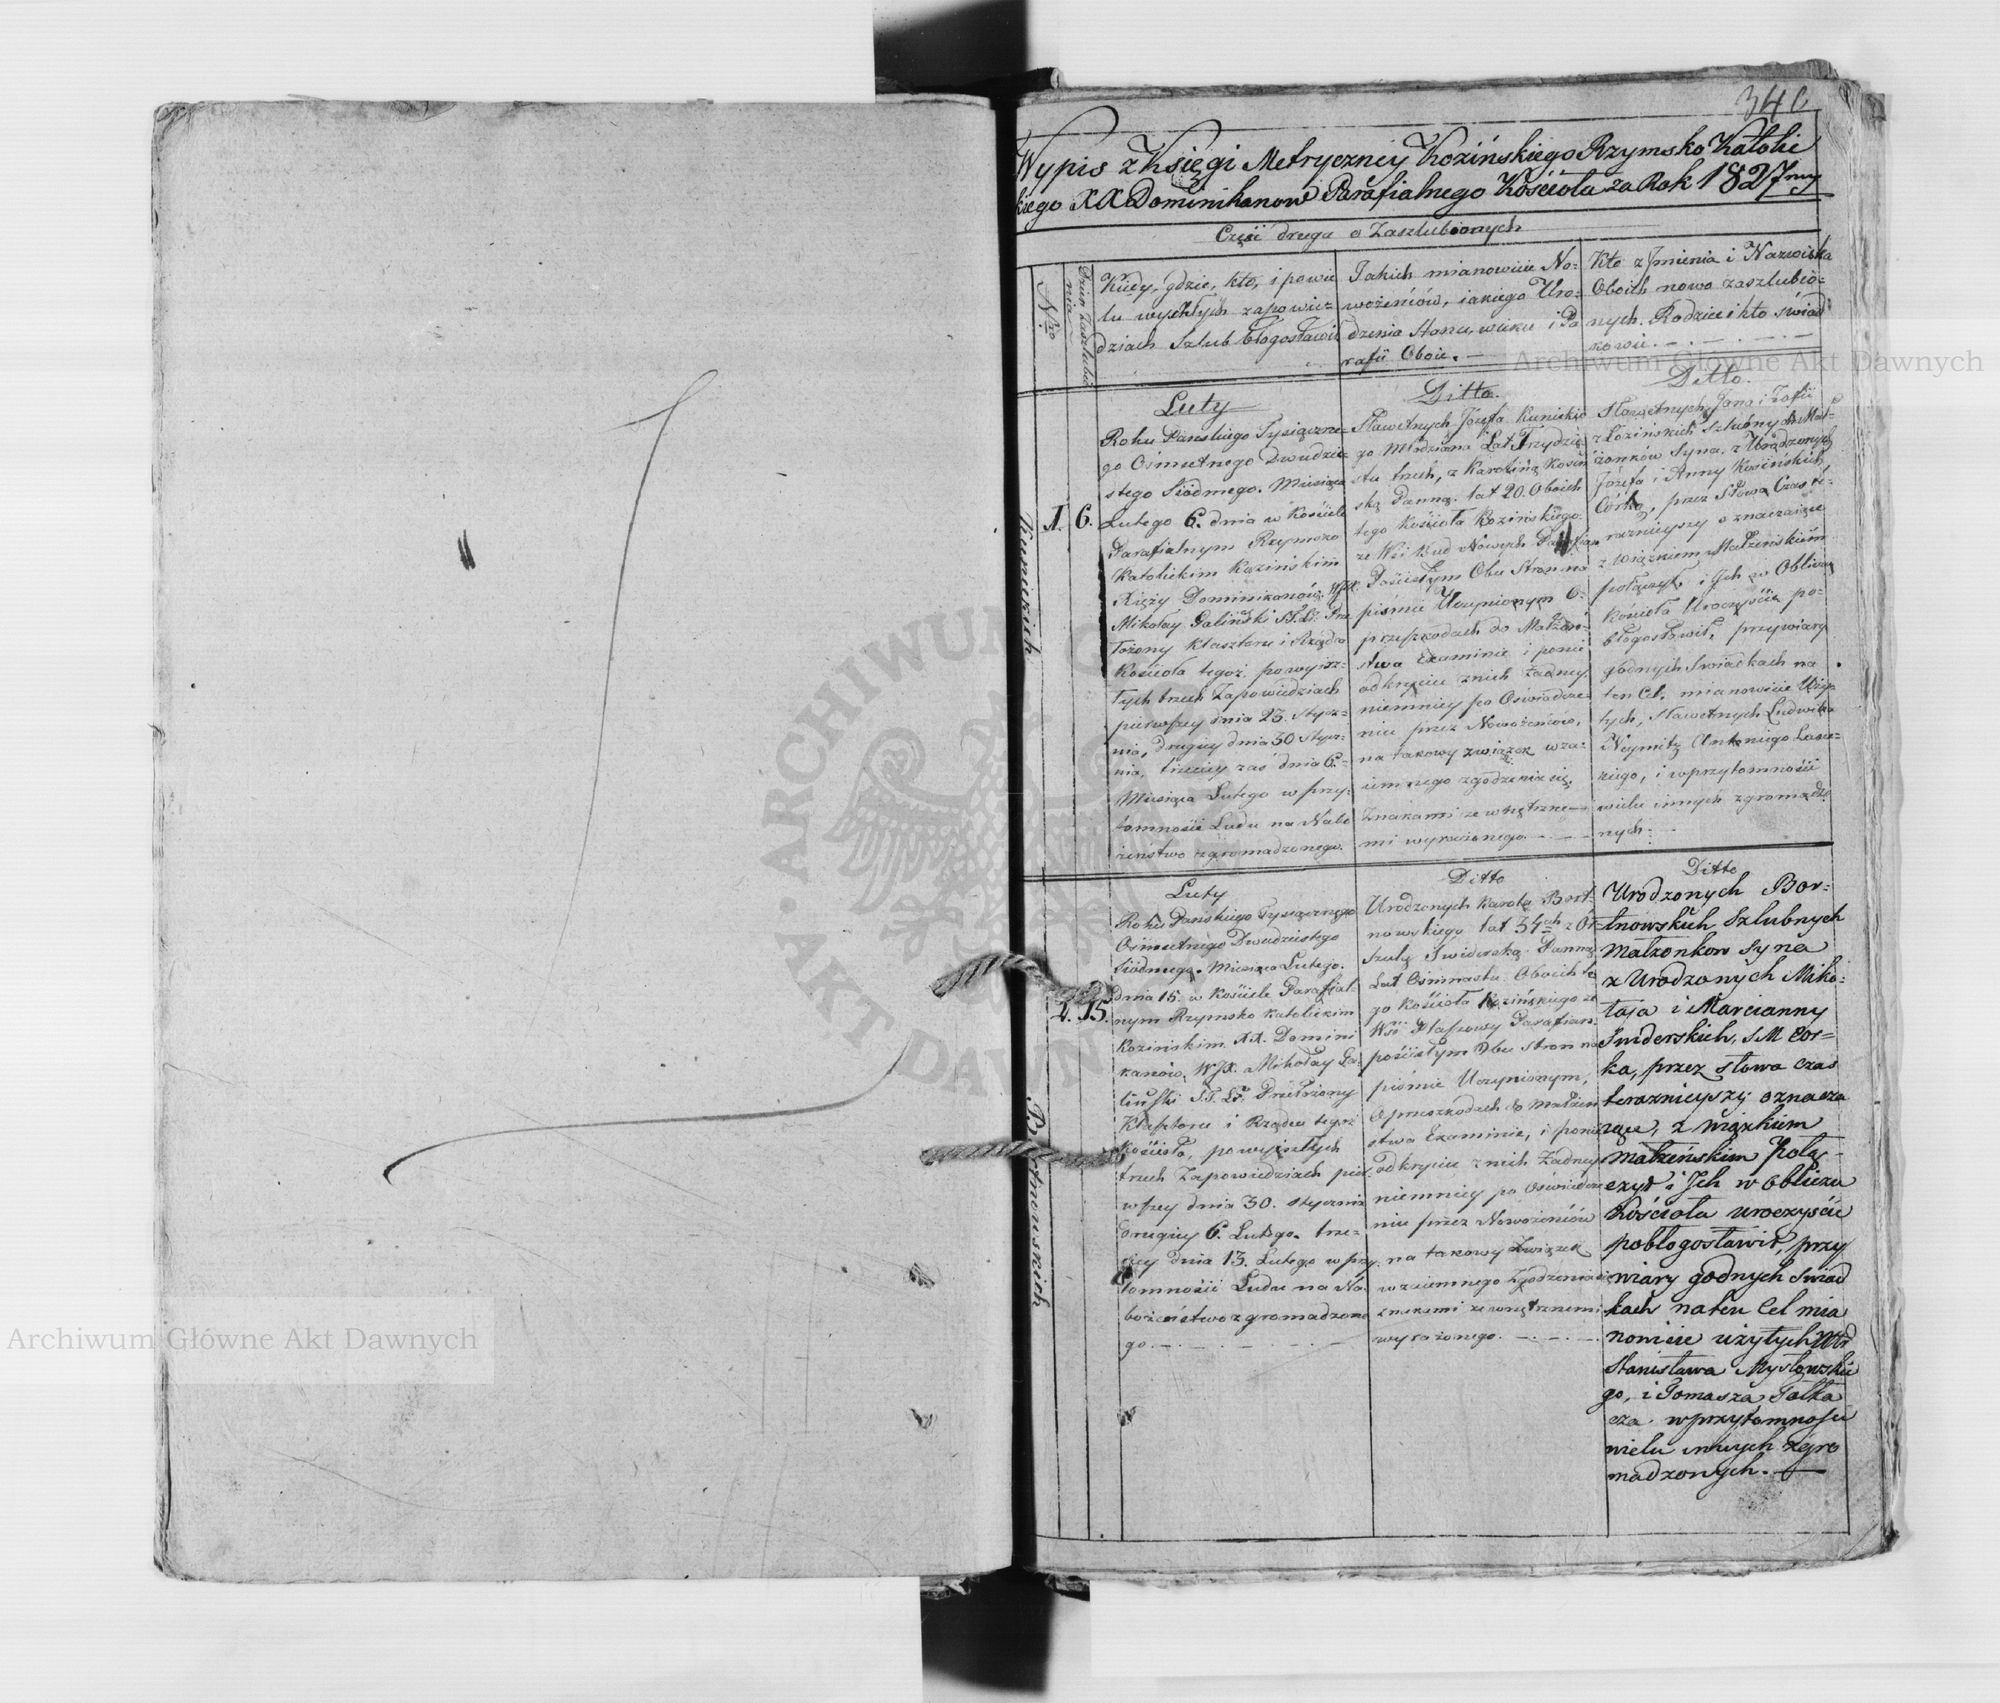 34
Wypis z Księgi Metryczney Kozińskiego Rzymsko Katolic
kiego XX Dominikanow Parafialnego Kościoła za Rok 1827my
Część druga o Zaszlubionych
Nro
Dzien Zaszlubie
nia
Kiedy, gdzie, kto, i powie
lu wyszłych zapowie=
dziach Szlub błogosławił
Jakich mianowicie No-
wożeńców, iakiego Uro-
dzenia Stanu, wieku i Pa
rafii Oboie.
Kto z Jmienia i Nazwiska
Oboich nowo zaszlubio-
nych Rodzice i kto świad
kowie.
Kunickich
1. 6.
Luty
Roku Pańskiego Tysiączne-
go Ośmsetnego Dwudzie
stego Siódmego. Miesiąca
Lutego 6. dnia w Kościele
Parafialnym Rzymsko
Katolickim Kozińskim
Xięży Dominikanów, WJX.
Mikołay Galiński S.T.Lr. Prze
łożony Klasztoru i Rządca
Kościoła tegoż, po wyisz-
łych trzech Zapowiedziach
pierwszey dnia 23. Stycz-
nia, drugiey dnia 30 Stycz-
nia, trzeciey zaś dnia 6.
Miesiąca Lutego w przy-
tomności Ludu na Nabo
żeństwo zgromadzonego.
Ditto.
Sławetnych Józefa Kunickie
go Młodziana Lat Trydzie
stu trzech, z Karoliną Kosiń
ską Panną lat 20. Oboich
tego Kościoła Kozińskiego
ze Wsi Bud Nowych Parafian
Pościsłym Obu Stron na
piśmie Uczynionym o
przeszkodach do Małżeń-
stwa Examinie i ponie
odkryciu z nich żadney
niemniey po Oświadcze
niu przez Nowożeńców,
na takowy związek wza-
iemnego zgodzenia się,
Znakami zewnętrzne-
mi wyrażonego.
Ditto.
Sławetnych Jana i Zofii
z Łozińskich Szlubnych Mał-
żonków Syna, z Urodzonych
Józefa i Anny Kosińskich
Córką, przez Słowa Czas te-
raznieyszy oznaczaiące
związkiem Małżeńskim
połączył i Jch w Obliczu
Kościoła Uroczyście po-
błogosławił, przy wiary
godnych Swiadkach na
ten Cel mianowicie Uży-
tych, Sławetnych Ludwika
Neymitz Antoniego
i w przytomności
wielu innych zgromadzo
nych.
Bortnowskich
2. 15.
Luty
Roku Pańskiego Tysiącznego
Ośmsetnego Dwudziestego
Siódmego. Miesiąca Lutego.
dnia 15. w Kościele Parafial-
nym Rzymsko Katolickim
Kozińskim XX. Domini
kanów, WJX. Mikołay Ga-
liński S.T.Lr. Przełożony
Klasztoru i Rządca tegoż
Kościoła, po wyiszłych
trzech Zapowiedziach pier
wszey dnia 30. stycznia
drugiey 6. Lutego. trze-
ciey dnia 13. Lutego w przy
tomności Ludu na Na-
bożeństwo zgromadzone
go.
Ditto
Urodzonych Karola Bort-
nowskiego lat 34ch z Ur
szulą Swiderską Panną
Lat Ośmnastu Oboich te
go Kościoła Kozińskiego ze
Wsi Płaszowy Parafian.
pościsłym Obu stron na
piśmie Uczynionym,
o przeszkodach do małżeń
stwa Examinie, i ponie
odkryciu z nich żadney
niemniey po Oświadcze
niu przez Nowożeńców
na takowy Związek
wzaiemnego Zgodzenia się
znakami zewnętrznemi
wyrażonego.
Ditto
Urodzonych Bor-
tnowskich Szlubnych
Małżonkow Syna
z Urodzonych Miko-
łaja i Marcianny
Swiderskich, S M Cor-
ka, przez słowa czas
teraznieyszy oznacza
iące, z wiązkiem
małżeńskim Połą-
czył i Jch w obliczu
Kościoła uroczyście
pobłogosławił, przy
wiary godnych Swiad
kach na ten Cel mia
nowicie użytych Urd
Stanisława Mysłowskie
go, i Tomasza Tołka
cza w przytomności
wielu innych zgro
madzonych.
Archiwum Główne Akt Dawnych
Archiwum Główne Akt Dawnych
ARCHIWUM
AKT DAWNYCH